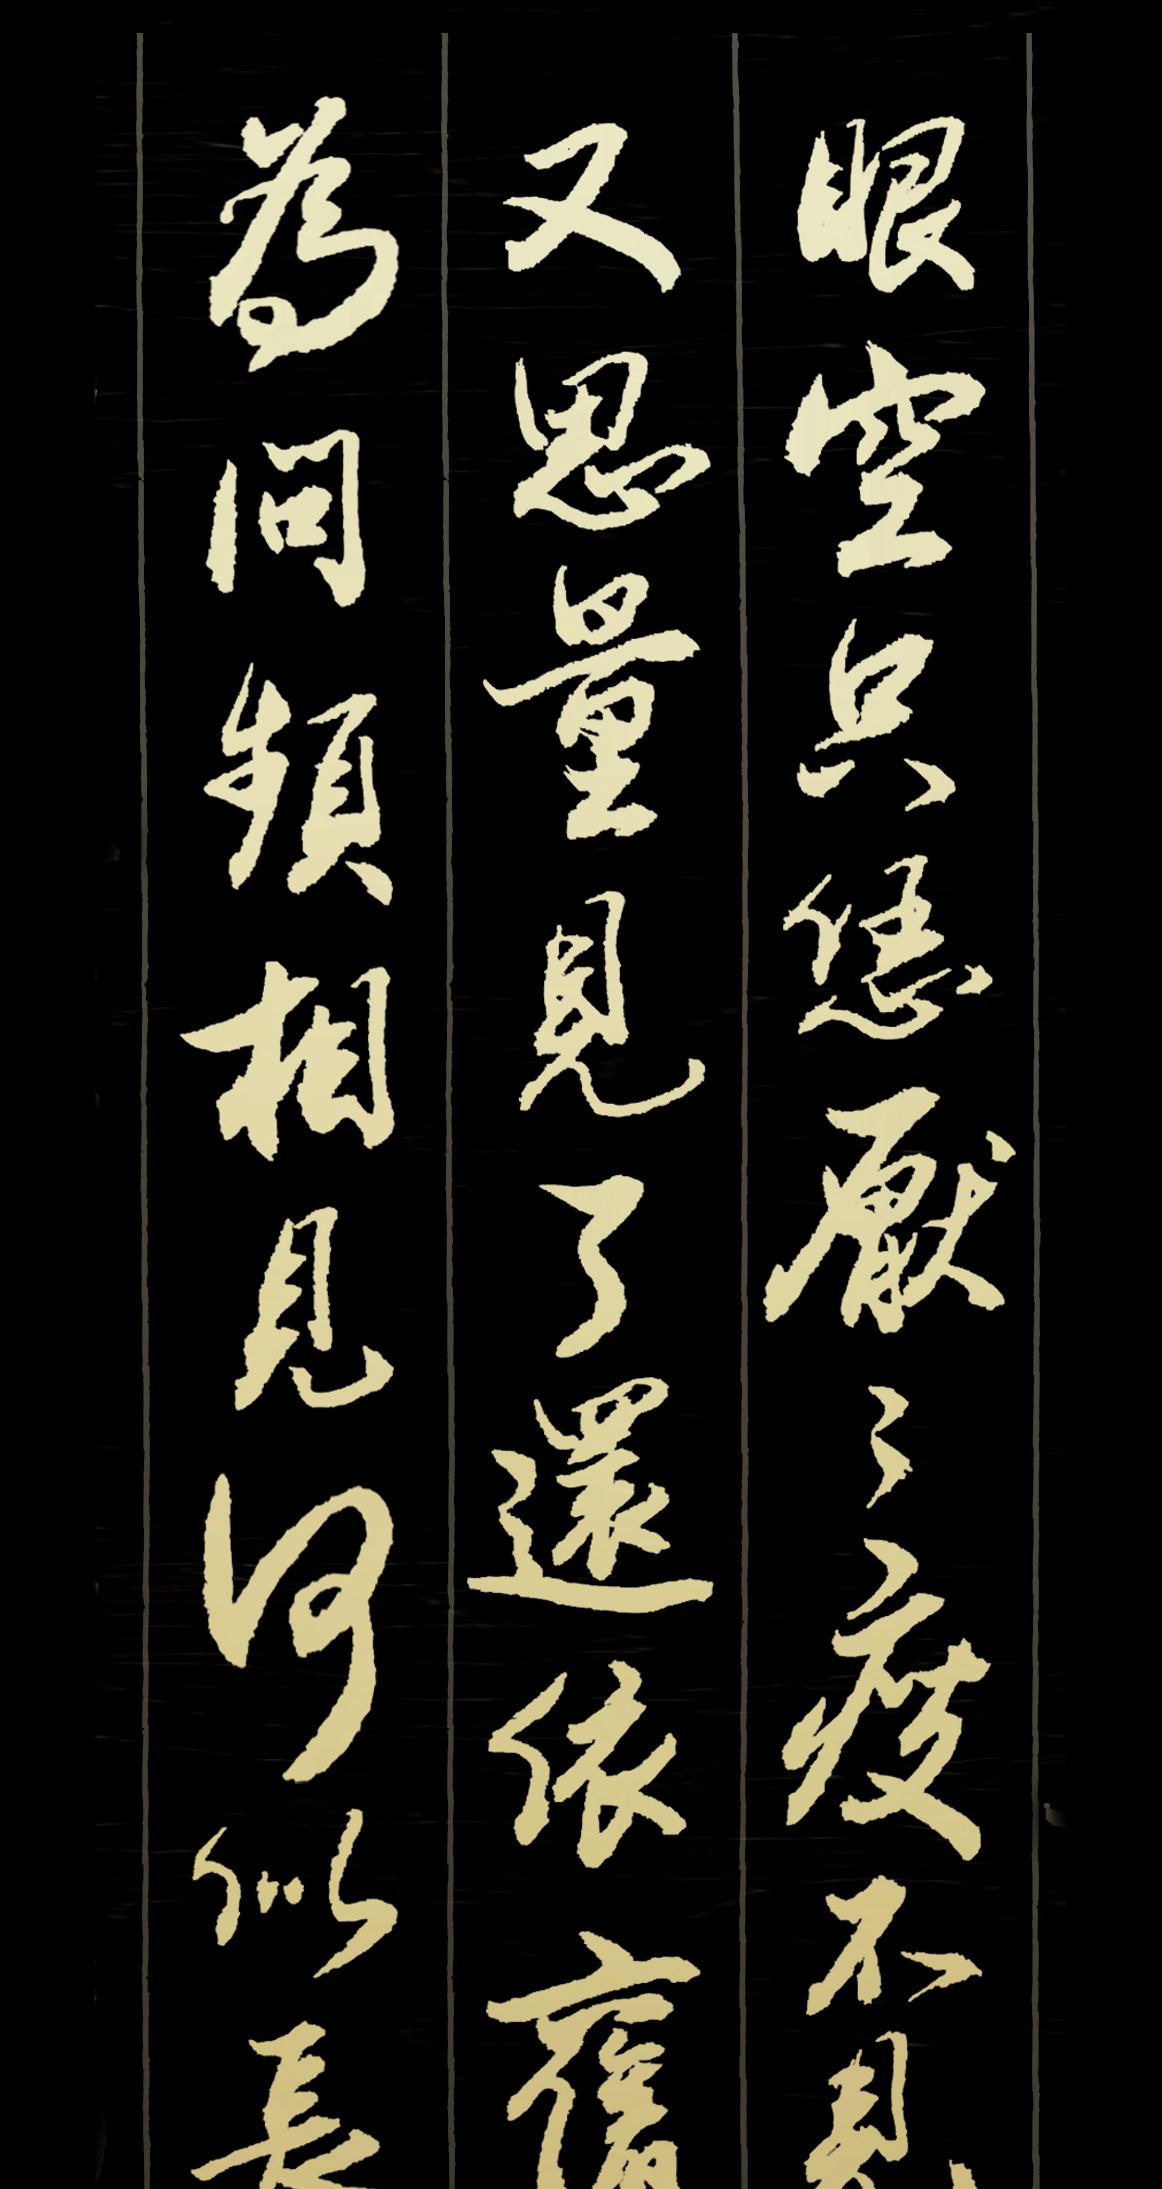 眼空只恁厭〻瘦不見
又思量見了還依舊
為問頻相見何似長